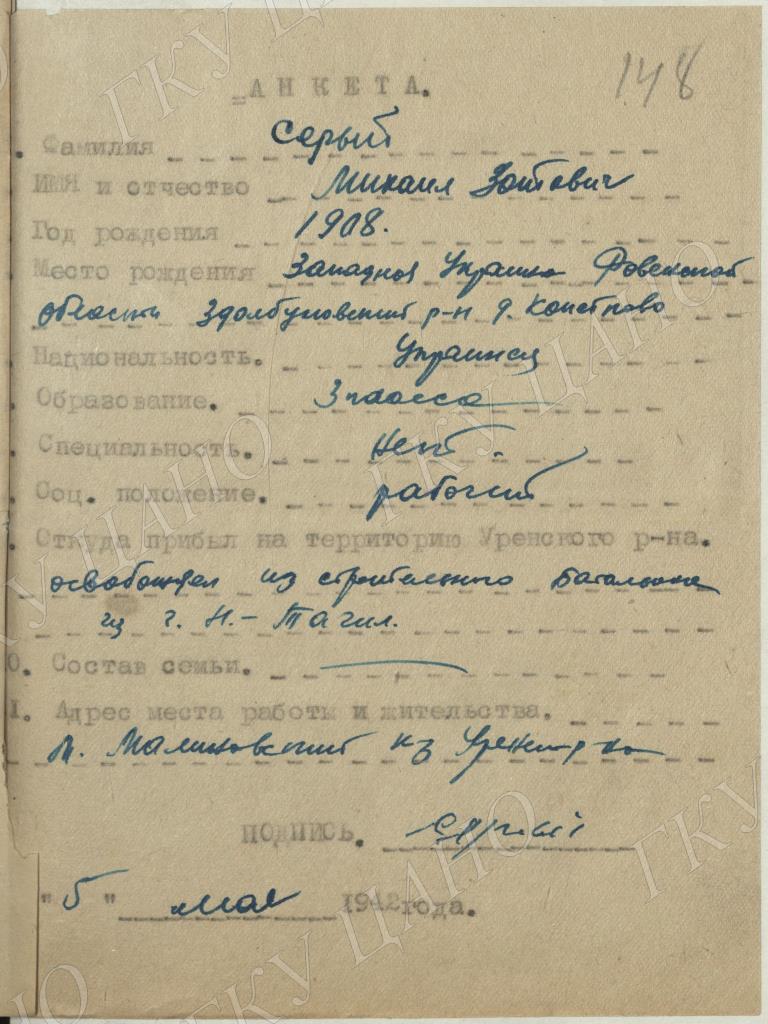 148
АНКЕТА.
Фамилия Серый
Имя и отчество Михаил Зотович
Год рождения 1908.
Место рождения Западная Украина Ровенской
области Здолбуновский р-н д.
Национальность. Украинец
Образование. 3 класса
Специальность. Нет.
Соц. положение. рабочий
Откуда прибыл на территорию Уренского р-на.
освобожден из строительного батальона
из г. Н.-Тагил.
0. Состав семьи. —
1. Адрес места работы и жительства.
Малиновский
ПОДПИСЬ. Серый
"5" мая 1942 года.
ГКУ ЦАНО